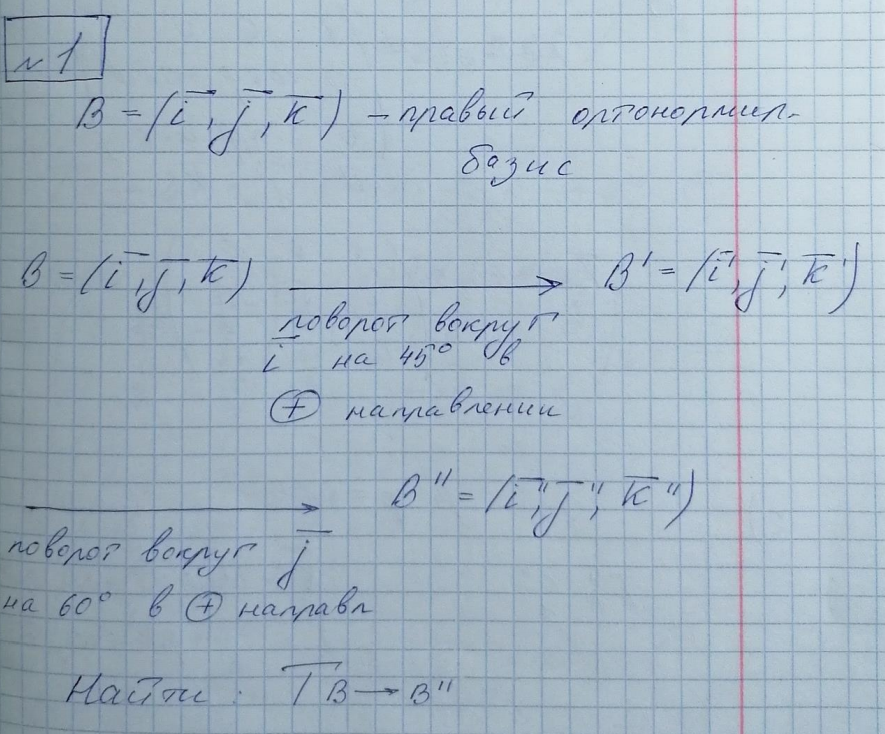 №1
B = (i̅, j̅, k̅) – правый ортонормир.
базис
B = (i̅, j̅, k̅) → B' = (i̅', j̅', k̅')
поворот вокруг
i̅ на 45° в
⊕ направлении
→ B'' = (i̅'', j̅'', k̅'')
поворот вокруг j̅
на 60° в ⊕ направл
Найти: T B→B''